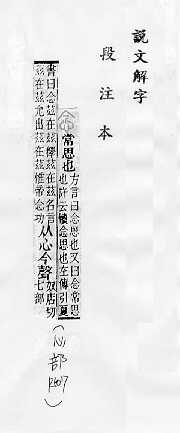 說文解字
段注本
念 常思也 方言曰念思也又曰念常思
也許云懷念思也左傳引夏
書曰念茲在茲釋茲在茲名言
茲在茲允出茲在茲惟帝念功
从心今聲 奴店切
七部
(心部)